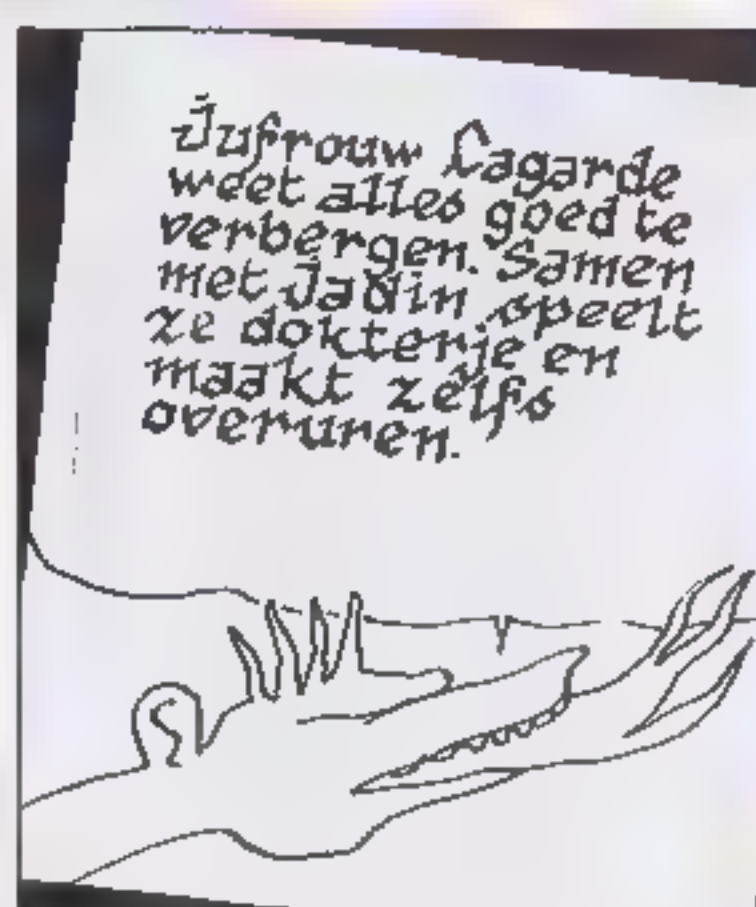 Jufrouw Lagarde
weet alles goed te
verbergen. Samen
met Jadin speelt
ze doktertje en
maakt zelfs
overuren.